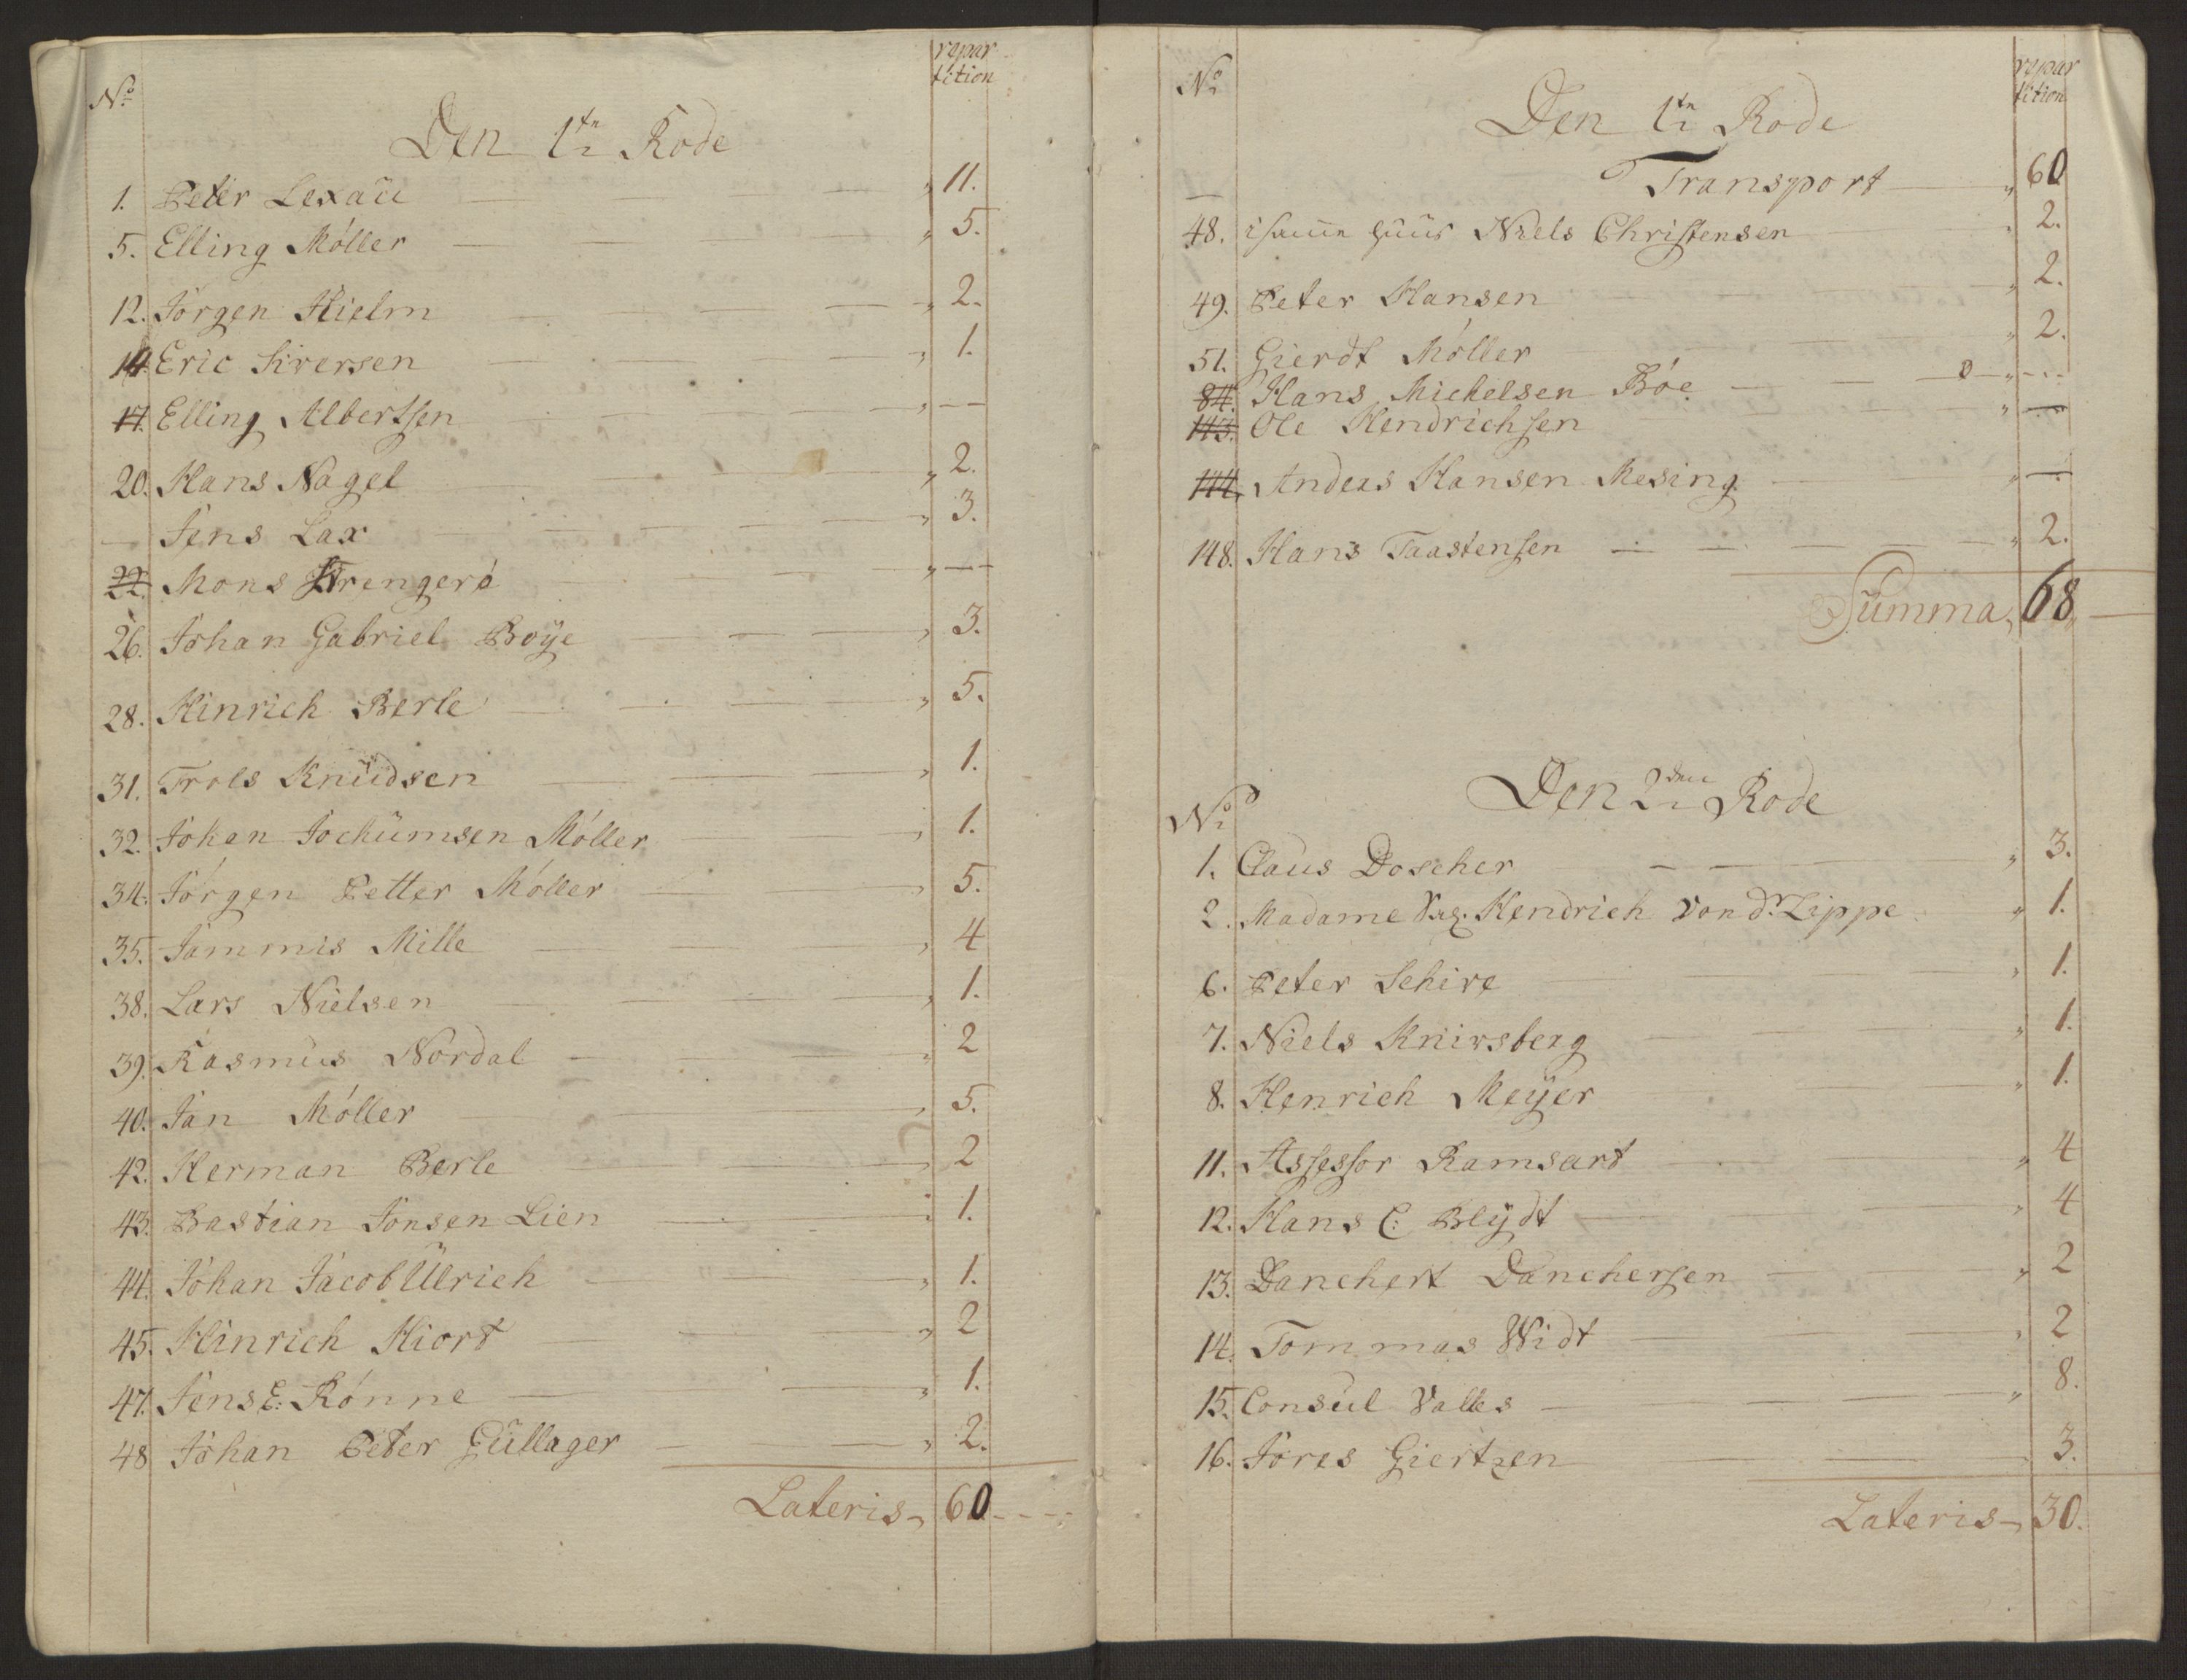 No repar
tition
Den 1te Rode
1. Peter Lexau 11.
5. Elling Möller 5.
12. Jörgen Hielm 2.
14 Eric Siversen 1.
17. Elling Albertsen —
20. Hans Nagel 2.
— Jens Lax 3.
22. Mons Strengerö —
26. Johan Gabriel Boÿe 3.
28. Hinrich Berle 5.
31. Trols Knudsen 1.
32. Johan Jochumsen Möller 1.
34. Jörgen Petter Möller 5.
35. Jammis Mille 4
38. Lars Nielsen 1.
39. Rasmus Nordal 2
40. Jan Möller 5.
42. Herman Berle 2
43. Bastian Jonsen Lien 1.
44. Johan Jacob Ulrich 1.
45. Hinrich Hiort 2
47. Jens E: Rönne 1.
48 Johan Peter Güllager 2.
Lateris 60
No repar
tition
Den 1te Rode
Transport 60
48. i samme Huus Niels Christensen 2.
49. Peter Hansen 2.
51. Gierdt Möller 2.
84. Hans Michelsen Böe 0 —
143. Ole Hendrichsen —
144. Anders Hansen Mesing —
148. Hans Taastensen 2.
Summa 68
Den 2den Rode
No
1. Claus Doscher 3.
2. Madame Hendrich von dr. Lippe 1.
6. Peter Schire 1.
7. Niels Knirsberg 1.
8. Henrich Meÿer 1.
11. Assessor Ramsart 4
12. Hans C: Blÿdt 4
13. Danchert Danchersen 2
14. Tommas Widt 2
15. Consul Valles 8.
16. Jöres Giertzen 3.
Lateris 30.